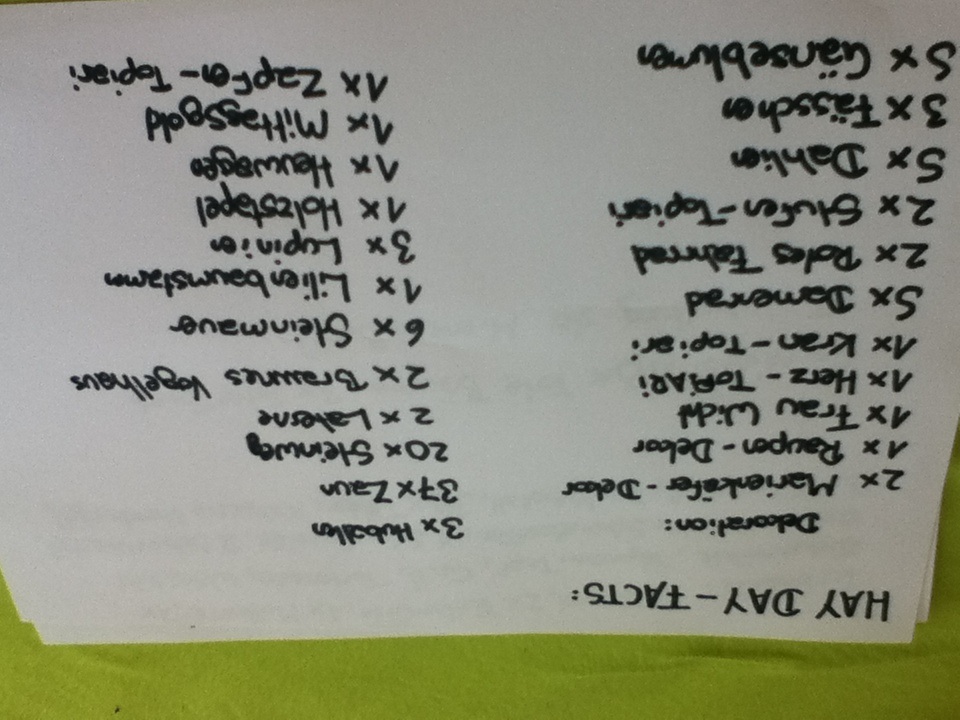 HAY DAY - FACTS:
Dekoration:
2x Marienkäfer - Dekor
1x Raupen - Dekor
1x Frau Wicht
1x Herz - ToPiARi
1x Kran - Topiari
5x Damenrad
2x Rotes Fahrrad
2x Stufen - Topiari
5x Dahlien
3x Fässchen
5x Gänseblumen
3x
37x Zaun
20x Steinweg
2x Laterne
2x Braunes Vogelhaus
6x Steinmauer
1x Lilienbaumstamm
3x Lupinien
1x Holzstapel
1x Heuwagen
1x Mittagsgold
1x Zapfen - Topiari